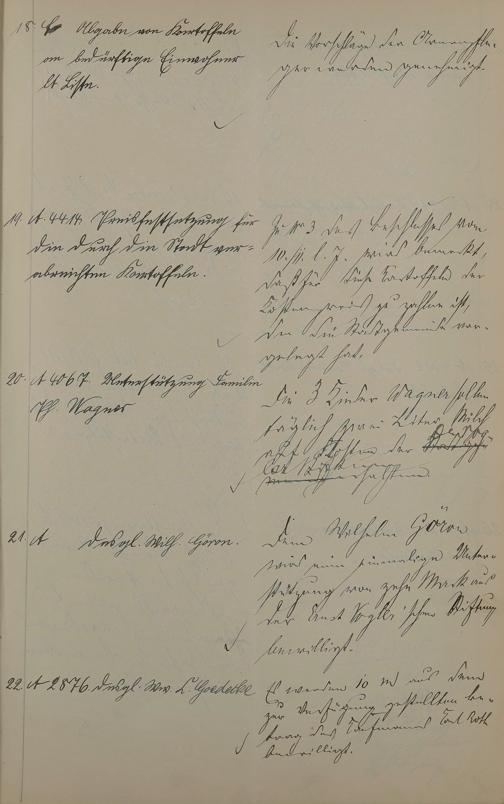 18. Abgabe von Kartoffeln
an bedürftige Einwohner
lt. Liste.
Die Vorschläge der Armenpfle-
ger werden genehmigt.
19. A. 4414. Preisfestsetzung für
die durch die Stadt ver-
abreichten Kartoffeln.
Zu No 3 des Beschlusses vom
10. l. J. wird bemerkt,
daß für diese Kartoffeln der
Kostenpreis zu zahlen ist,
den die Stadtgemeinde vor-
gelegt hat.
20. A 4067. Unterstützung Familie
Ph. Wagner
Die 3 Kinder Wagner sollen
täglich zwei Liter Milch
auf Kosten der
erhalten.
21. A desgl. Wilh. Göron.
Dem Wilhelm Göron
wird eine einmalige Unter-
stützung von zehn Mark aus
der 'schen Stiftung
bewilligt.
22. A 2876 desgl. Ww. L. Goedecke
Es werden 10 M aus dem
zur Verfügung gestellten Be-
trag des Kaufmanns Carl Roth
bewilligt.